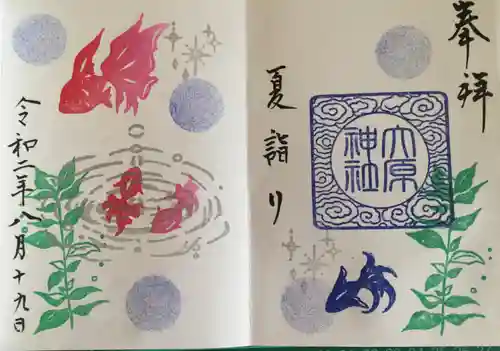 奉拝
夏詣り
大原
神社
令和二年八月十九日